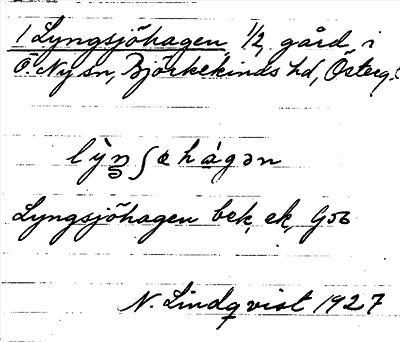 1 Lyngsjöhagen, 1/2 gård i
Ö. Ny sn, Björkekinds hd, Österg.
Lyngsjöhagen bek, ek,
N. Lindqvist 1927